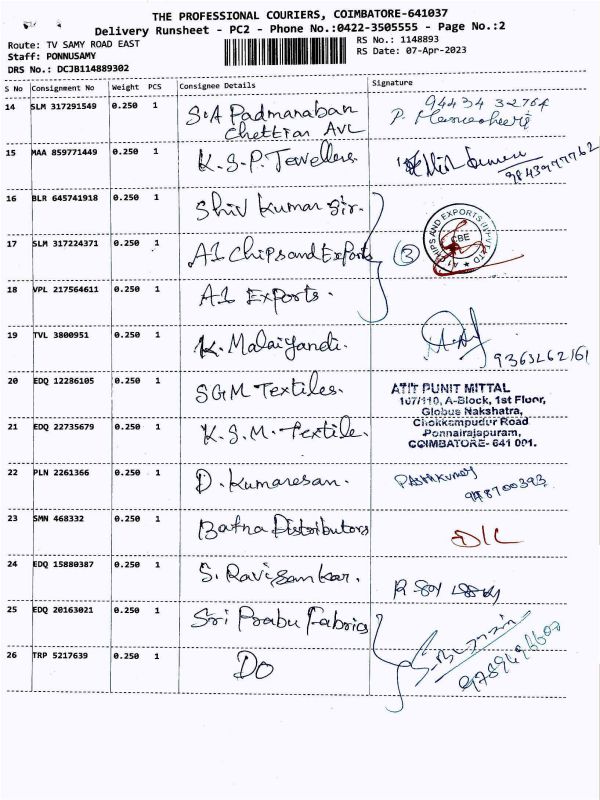 THE PROFESSIONAL COURIERS, COIMBATORE-641037
Delivery Runsheet - PC2 - Phone No.:0422-3505555 - Page No.:2
Route: TV SAMY ROAD EAST
RS No.: 1148893
Staff: PONNUSAMY
RS Date: 07-Apr-2023
DRS No.: DCJB114889302
S No Consignment No Weight PCS Consignee Details Signature
14 SLM 317291549 0.250 1 S.A Padmanaban 94434 32764
Chettiar AVL P.
15 MAA 859771449 0.250 1 K.S.P. Jewellers
9843977762
16 BLR 645741918 0.250 1 Shiv Kumar Sir.
17 SLM 317224371 0.250 1 A1 Chips and Exports 3
A1 CHIPS AND EXPORTS (I) PVT LTD
CBE
18 VPL 217564611 0.250 1 A1 Exports.
19 TVL 3800951 0.250 1 K. Malaiyandi.
9363262161
20 EDQ 12286105 0.250 1 SGM Textiles.
ATIT PUNIT MITTAL
107/110, A-Block, 1st Floor,
Globus Nakshatra,
Chokkampudur Road
Ponnairajapuram,
COIMBATORE- 641 001.
21 EDQ 22735679 0.250 1 K.S.M. Textile.
22 PLN 2261366 0.250 1 D. Kumaresan.
23 SMN 468332 0.250 1 Bafna Distributors D/L
24 EDQ 15880387 0.250 1 S. Ravisankar.
25 EDQ 20163021 0.250 1 Sri Prabu Fabrics
26 TRP 5217639 0.250 1 DO